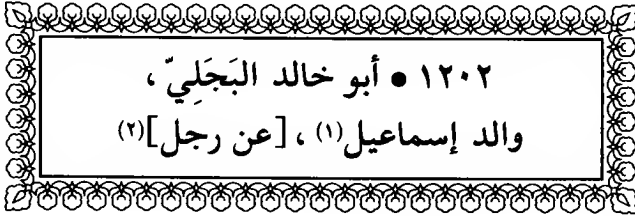 ١٢٠٢ • أبو خالد البَجَلِيّ ،
والد إسماعيل(١) ، [عن رجل](٢)